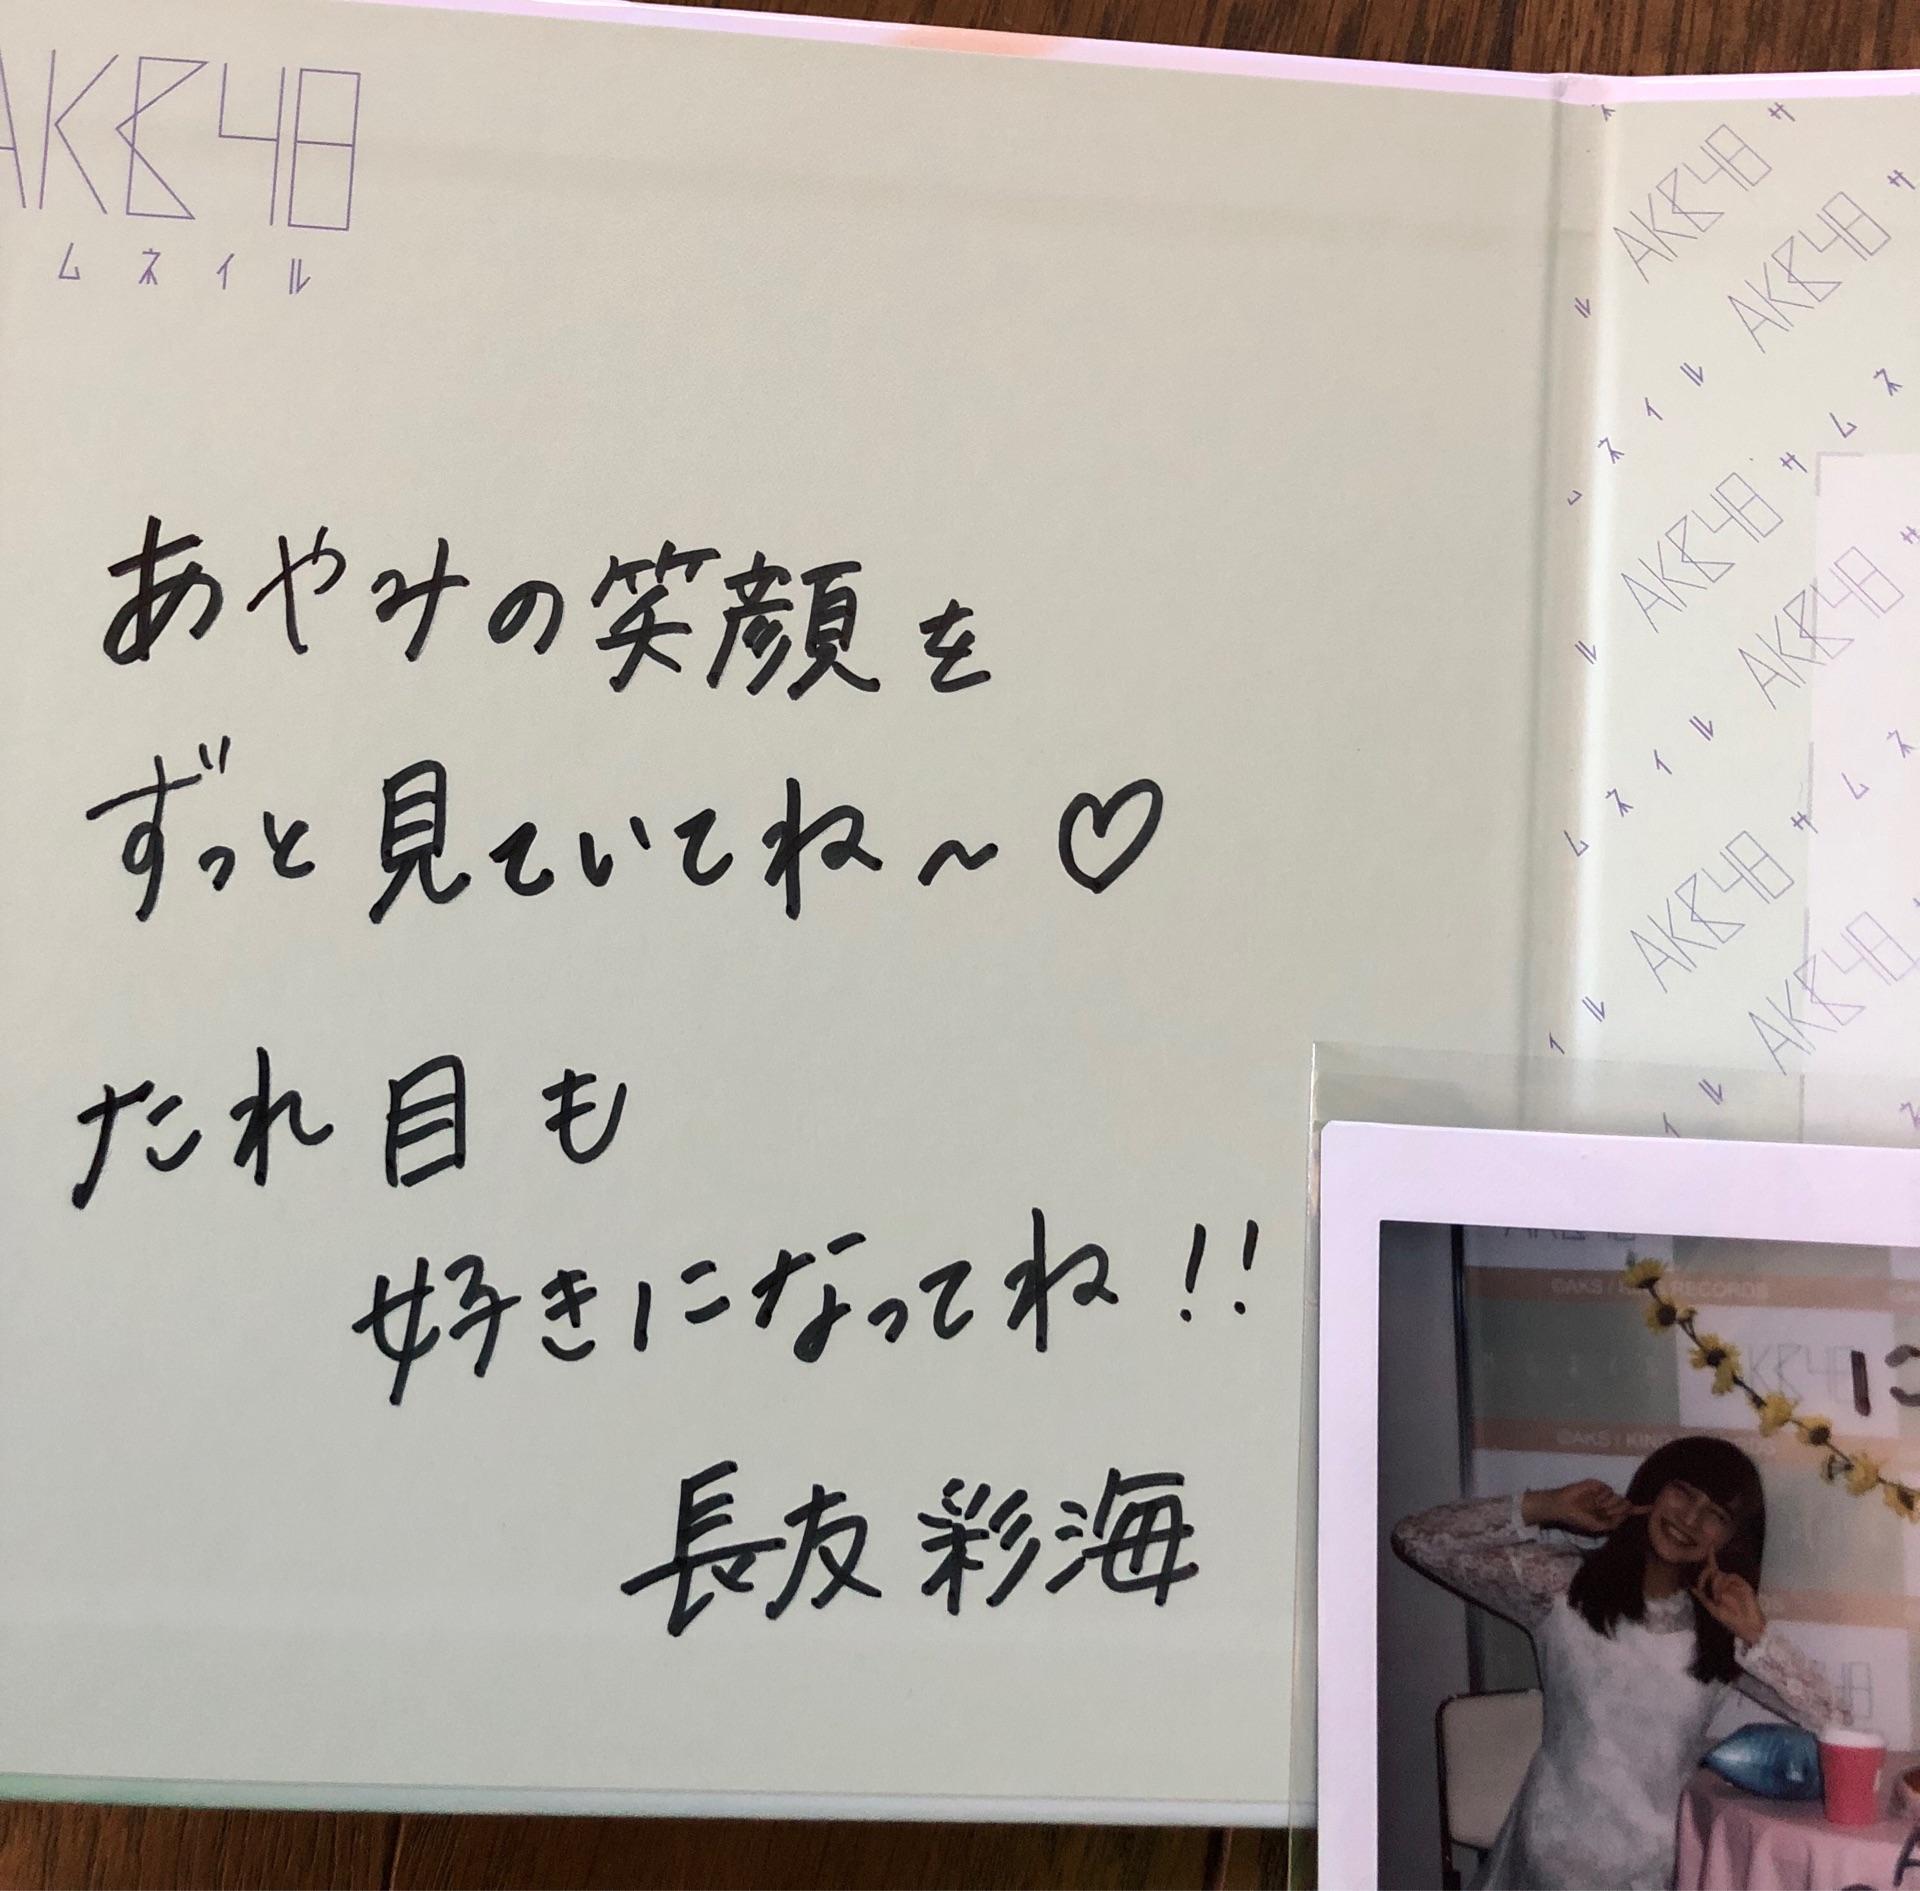 AKB48
ムネイル
あやみの笑顔を
ずっと見ていてね～♡
たれ目も
好きになってね!!
長友彩海
AKB48
サムネイル
AKB48
サムネイル
AKB48
サムネイル
AKB48
サムネイル
AKB48
AKB48
©AKS / KING RECORDS
AKB48
©AKS / KING